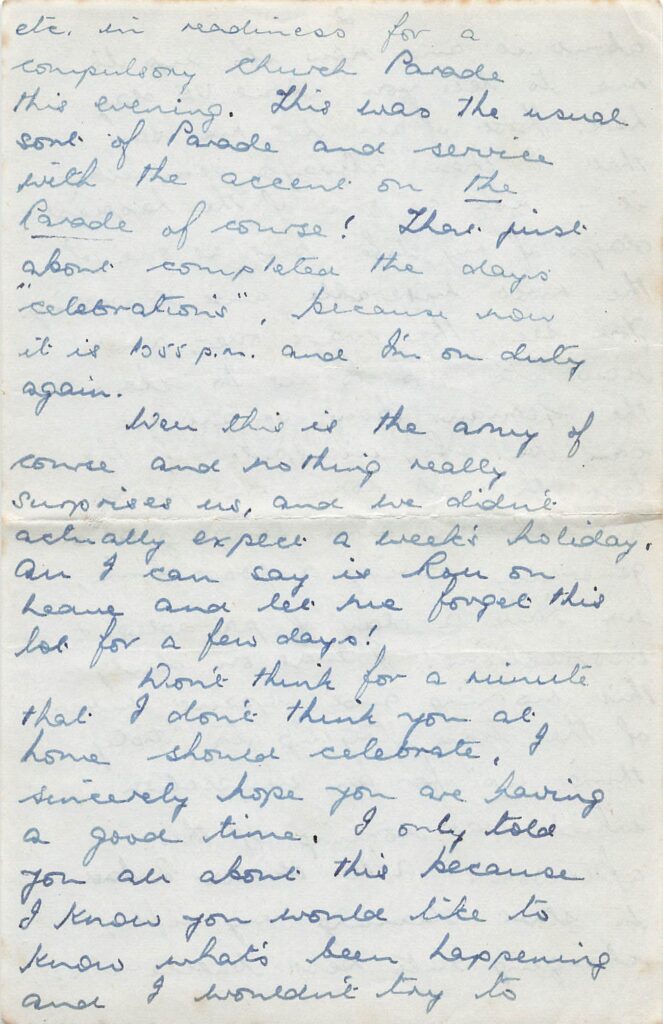 etc. in readiness for a
compulsory Church Parade
this evening. This was the usual
sort of Parade and service
with the accent on the
Parade of course! That just
about completed the days
"celebrations", because now
it is 1055 p.m. and I'm on duty
again.
Well this is the army of
course and nothing really
surprises us, and we didn't
actually expect a week's holiday.
All I can say is Roll on
Leave and let me forget this
lot for a few days!
Don't think for a minute
that I don't think you at
home should celebrate, I
sincerely hope you are having
a good time. I only told
you all about this because
I know you would like to
know what's been happening
and I wouldn't try to